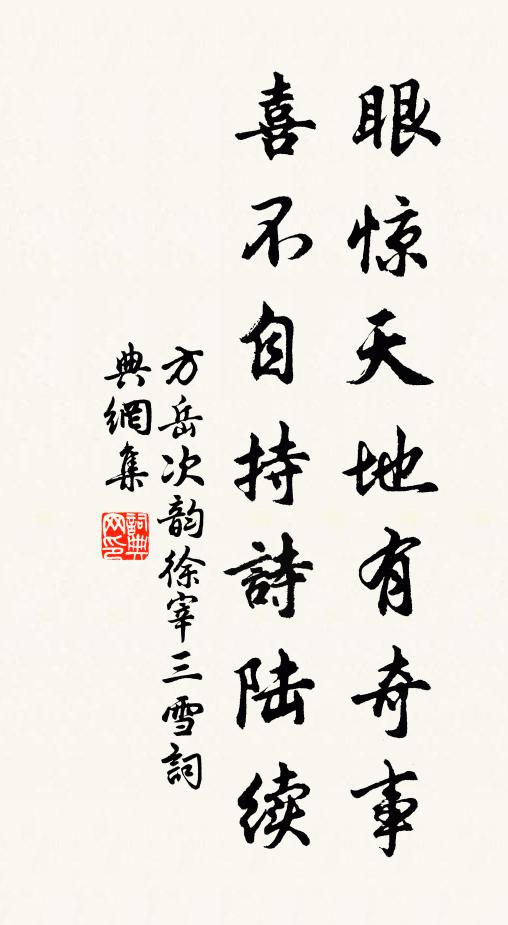 眼惊天地有奇事
喜不自持詩陆续
方岳次韵徐宰三雪詞
典網集
詞典网印